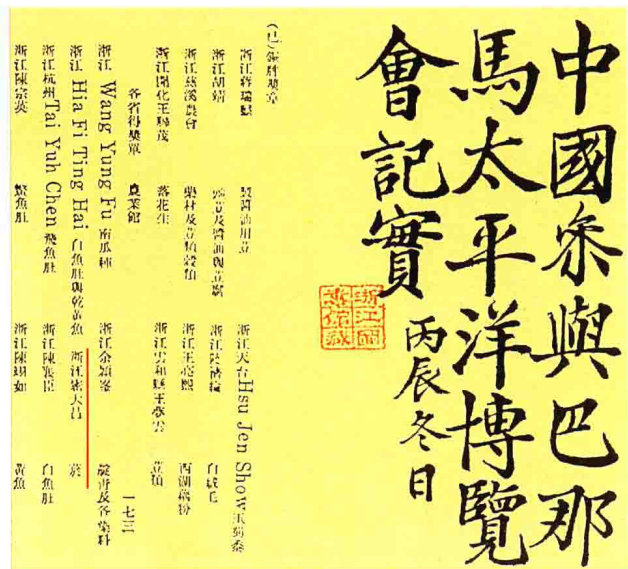 中國叅與巴那
馬太平洋博覽
會記實
丙辰冬日
浙江圖書館藏
銀牌獎章
浙江蔣瑞 製醬油用豆 浙江天台Hsu Jen Show玉蜀黍
浙江胡靖 豆及醬油與豆腐 浙江 白絨毛
浙江慈溪農會 藥材及豆類穀類 浙江王亮熙 西湖藕粉
浙江開化王聯茂 落花生 浙江雲和縣王夢雲 豆類
各省得獎單 農業館 一七三
浙江 Wang Yung Fu 南瓜種 浙江余穎峯 靛青及各染料
浙江 Hia Fi Ting Hai 白魚肚與乾黃魚 浙江密大昌 菸
浙江杭州 Tai Yuh Chen 魚肚 浙江陳襄臣 白魚肚
浙江陳宗英 魚肚 浙江陳翊如 黃魚